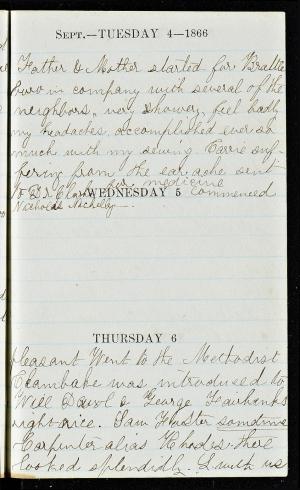 SEPT.—TUESDAY 4—1866
Father & Mother started for Brattle
boro in company with several of the
neighbors, very showery, feel badly
my headaches, accomplished ever so
much with my sewing. Carrie suf-
fering from the ear ache sent
to Dr. Clark for medicine
WEDNESDAY 5
commenced
Nicholas Nickelby—.
THURSDAY 6
pleasant Went to the Methodist
Clambake was introduced to
Will & George Fairbanks
right nice. Sam sometime
Carpenter alias Rhodes there
looked splendidly. I with us